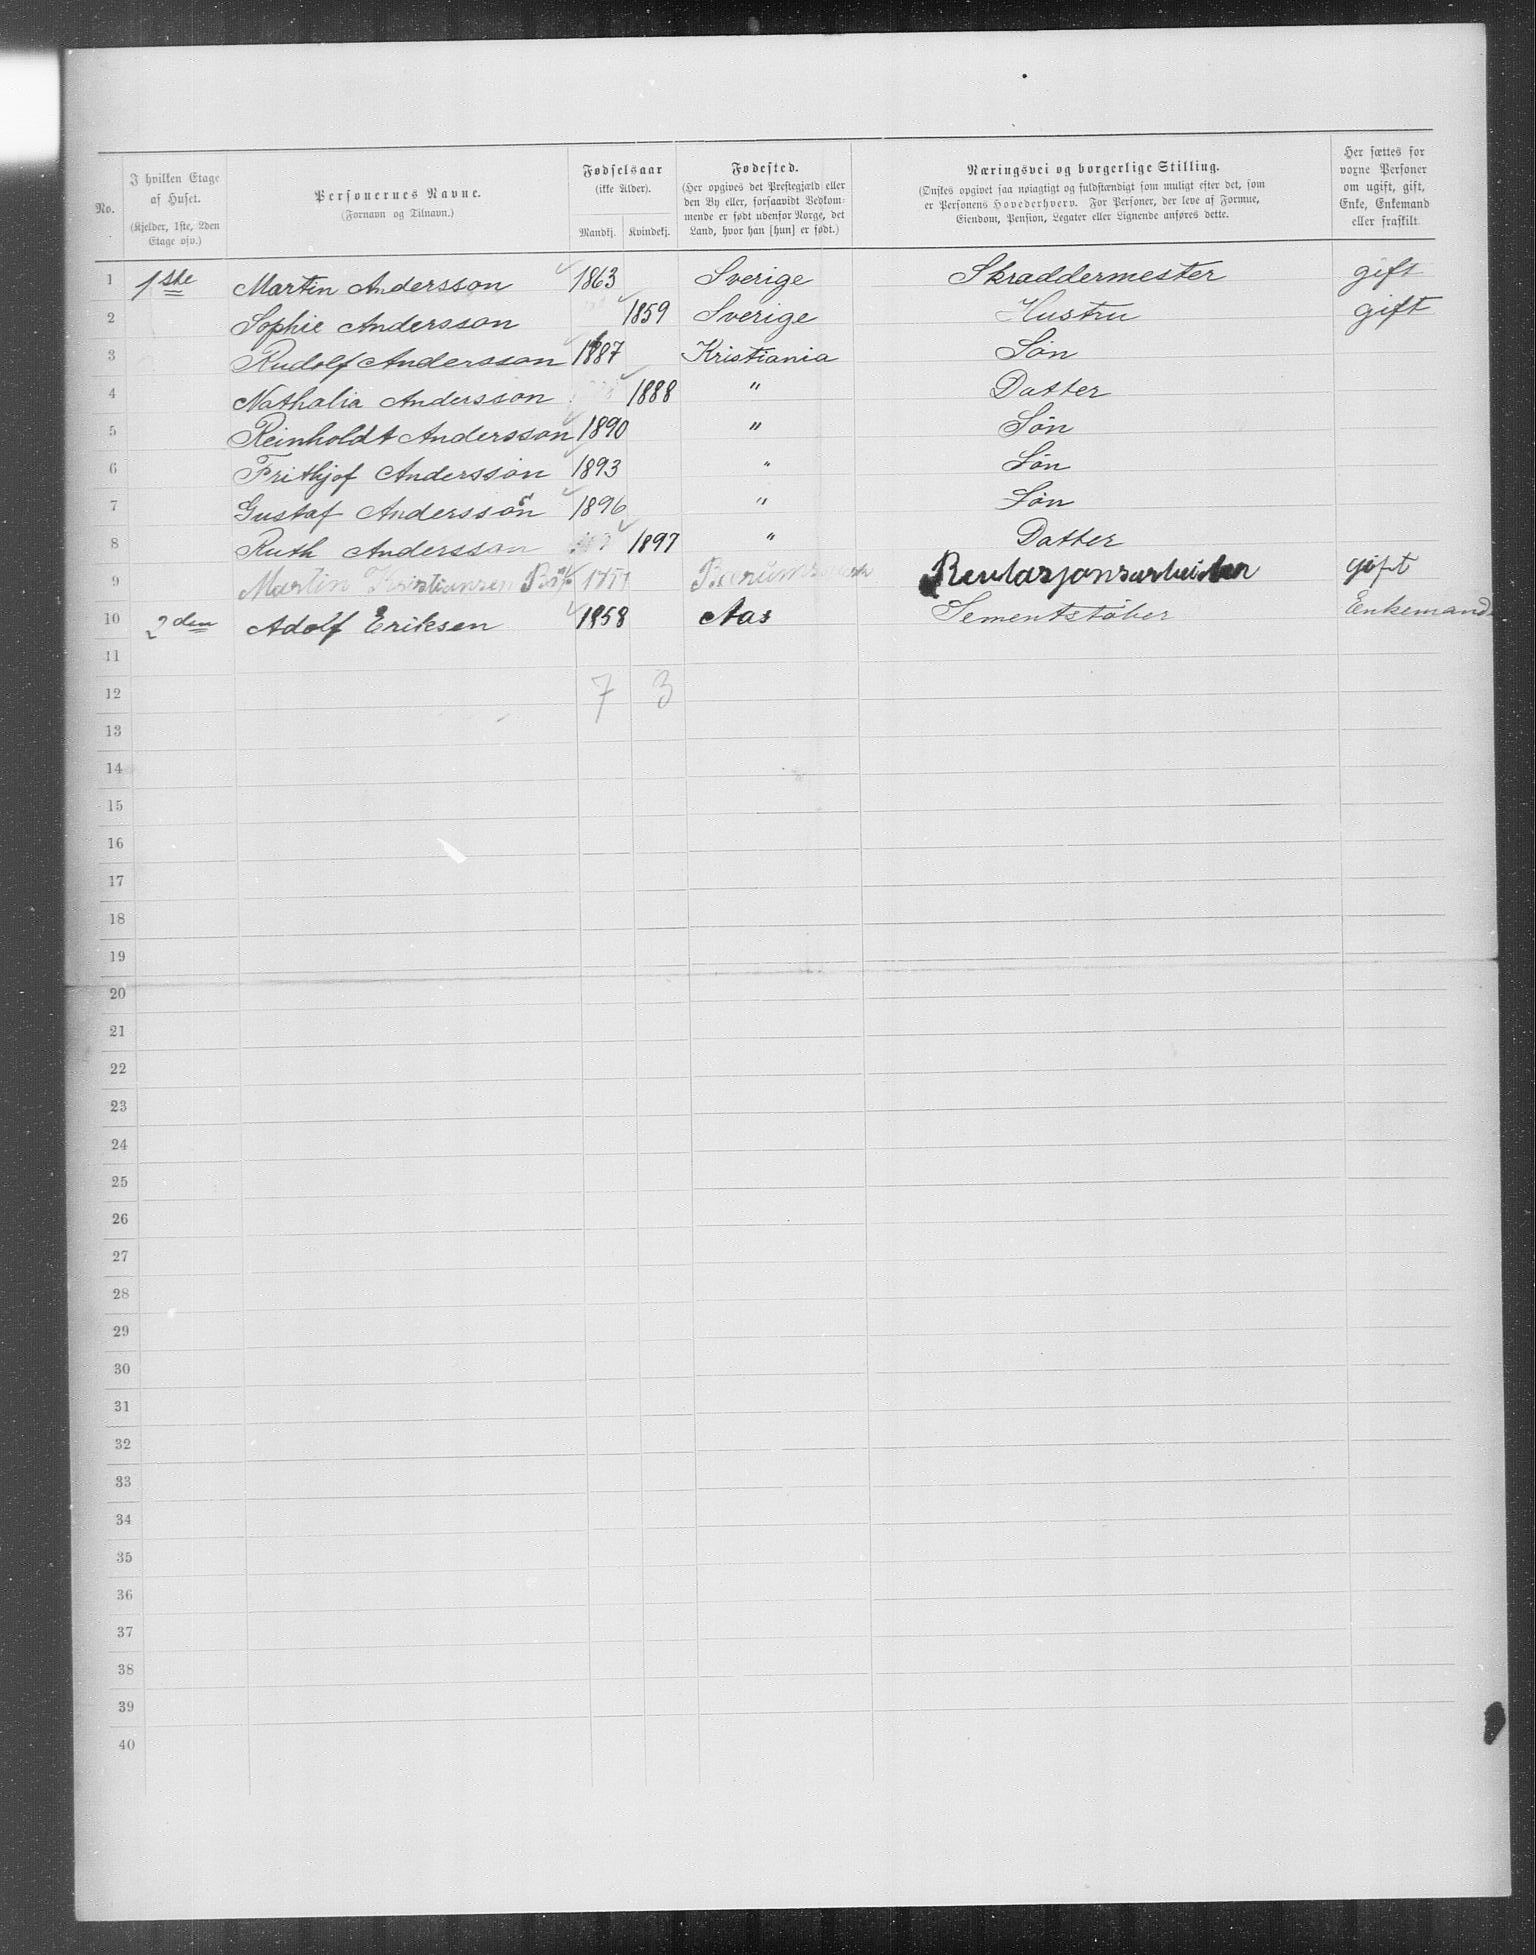 No.
I hvilken Etage af Huset.
(Kjelder, 1ste, 2den Etage osv.)
Personernes Navne.
(Fornavn og Tilnavn.)
Fødselsaar
(ikke Alder).
Mandkj. Kvindekj.
Fødested.
(Her opgives det Prestegjæld eller den By eller, forsaavidt Vedkommende er født udenfor Norge, det Land, hvor han [hun] er født.)
Næringsvei og borgerlige Stilling.
(Ønskes opgivet saa nøiagtigt og fuldstændigt som muligt efter det, som er Personens Hovederhverv. For Personer, der leve af Formue, Eiendom, Pension, Legater eller Lignende anføres dette.
Her sættes for voxne Personer om ugift, gift, Enke, Enkemand eller fraskilt.
1 1ste Martin Andersson 1863 Sverige Skraddermester gift
2 Sophie Andersson 1859 Sverige Hustru gift
3 Rudolf Andersson 1887 Kristiania Søn
4 Nathalia Andersson 1888 " Datter
5 Reinholdt Andersson 1890 " Søn
6 Frithjof Andersson 1893 " Søn
7 Gustaf Andersson 1896 " Søn
8 Ruth Andersson 1897 " Datter
9 Martin Kristiansen gift
10 2den Adolf Eriksen 1858 Aas Sementstøber Enkemand
11
12 7 3
13
14
15
16
17
18
19
20
21
22
23
24
25
26
27
28
29
30
31
32
33
34
35
36
37
38
39
40